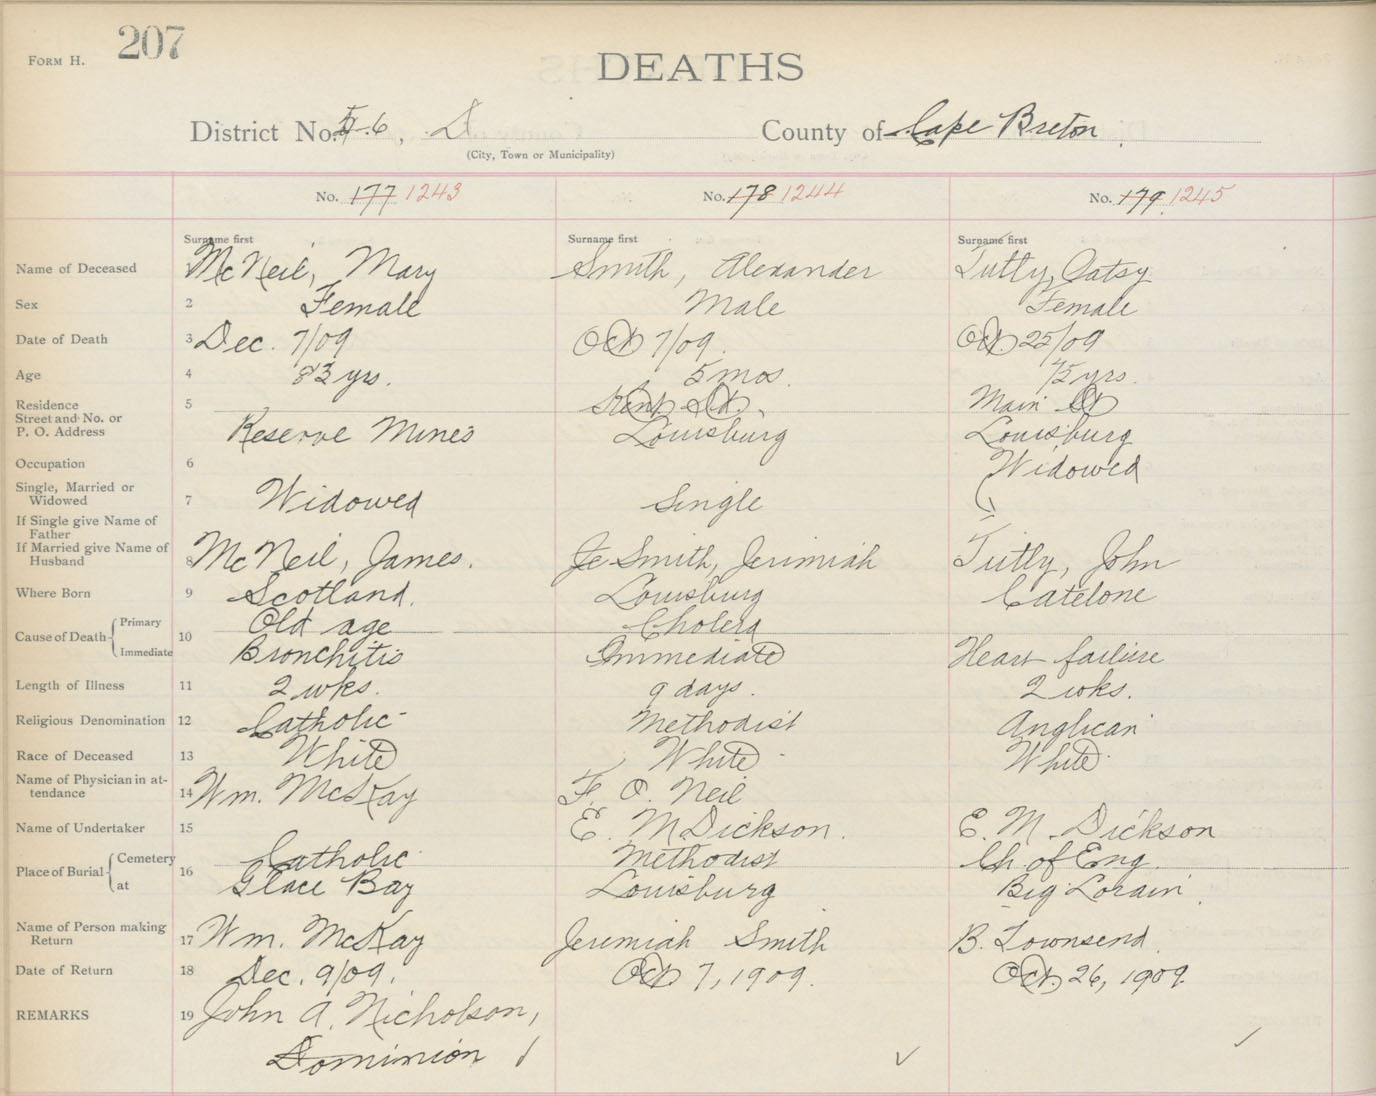 FORM H. 207
DEATHS
District No. 6, D County of Cape Breton
(City, Town or Municipality)
No. 177 1243 No. 178 1244 No. 179 1245
Surname first Surname first Surname first
Name of Deceased 1 McNeil, Mary Smith, Alexander Tutty, Patsy
Sex 2 Female Male Female
Date of Death 3 Dec. 7/09 Oct 7/09. Oct 25/09
Age 4 83 yrs. 5 mos. 75 yrs.
Residence 5 Kent St. Main St
Street and No. or
P. O. Address Reserve Mines Louisburg Louisburg
Occupation 6 Widowed
Single, Married or
Widowed 7 Widowed Single
If Single give Name of
Father
If Married give Name of
Husband 8 McNeil, James. Smith, Jerimiah Tutty, John
Where Born 9 Scotland. Louisburg Catelone
Cause of Death Primary 10 Old age Cholera
Immediate Bronchitis Immediate Heart failure
Length of Illness 11 2 wks. 9 days. 2 wks.
Religious Denomination 12 Catholic Methodist Anglican
Race of Deceased 13 White White White
Name of Physician in at-
tendance 14 Wm. McKay F. O. Neil
Name of Undertaker 15 E. M. Dickson. E. M. Dickson
Place of Burial Cemetery 16 Catholic Methodist Ch. of Eng.
at Glace Bay Louisburg Big Lorain
Name of Person making
Return 17 Wm. McKay Jerimiah Smith B. Townsend
Date of Return 18 Dec. 9/09. Oct 7, 1909. Oct. 26, 1909.
REMARKS 19 John A. Nicholson,
Dominion